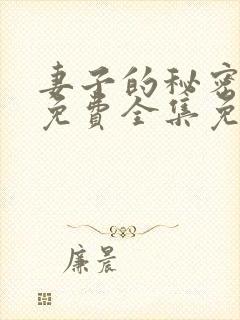 妻子的秘密
免费全集免
廉晨